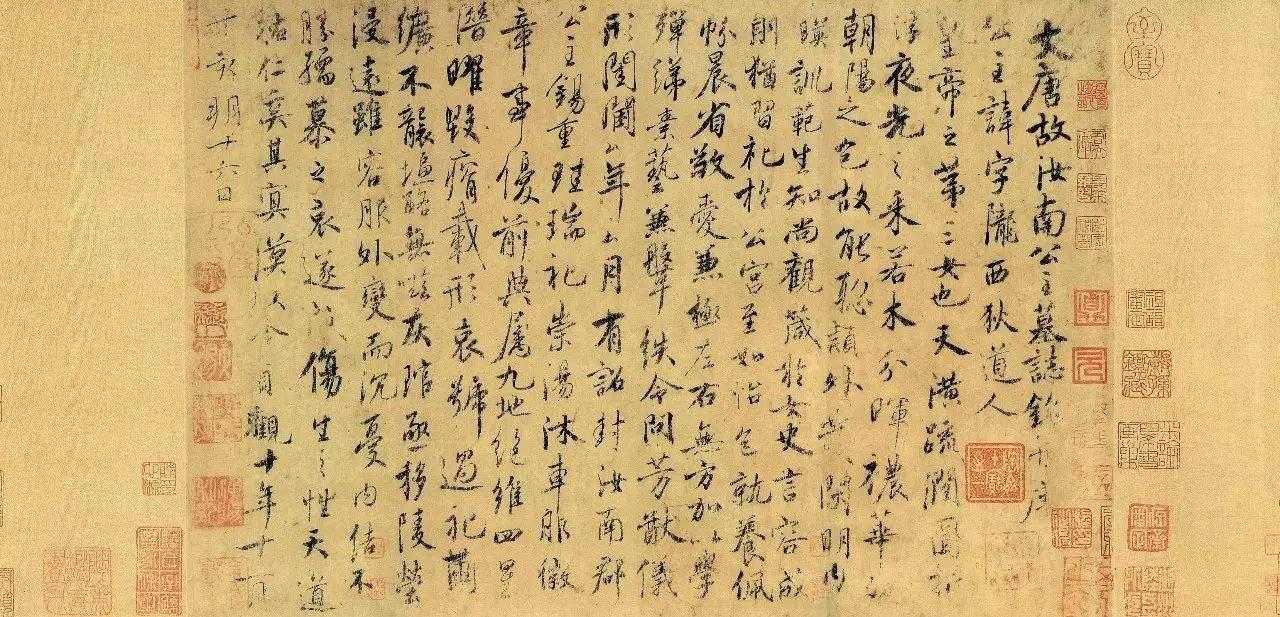 大唐故汝南公主墓誌銘并序
公主諱字隴西狄道人
皇帝之第三女也天潢疏潤圓折
浮夜光之采若木分暉穠華照
朝陽之色故能聡穎外發閑明內
暎訓範生知尚觀箴於女史言容成
則猶習礼於公宮至如怡色就養佩
帉晨省敬愛兼極左右無方加以學
殫綈素藝兼鞶紩令問芳猷儀
形閨閫厶年厶月有詔封汝南郡
公主錫重珪瑞礼崇湯沐車服徽
章事優前典屬九地絕維四星
潛曜毀瘠載形哀號過礼繭
纊不襲塩酪無嗞灰琯亟移陵塋
浸遠雖容服外變而沉憂內結不
勝孺慕之哀遂成傷生之性天道
祐仁奚其冥漠以今貞觀十年十一月
丁亥朔十六日